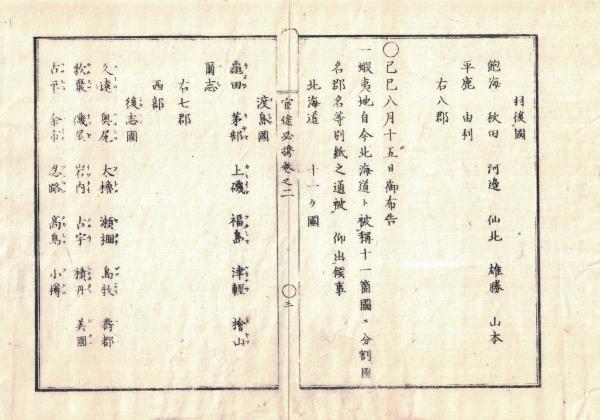 羽後國
飽海 秋田 河邊 仙北 雄勝 山本
平鹿 由利
右八郡
〇己巳八月十五日御布告
一蝦夷地自今北海道ト被稱十一箇國ニ分割國
名郡名等別紙之通被 仰出候事
北海道 十一ヶ國
官途必携巻之二
〇三
渡島國
龜田 茅部 上磯 福島 津輕 檜山
爾志
右七郡
西部
後志國
久遠 奥尻 太櫓 瀬棚 島牧 壽都
歌棄 磯屋 岩内 古宇 積丹 美國
古平 余市 忍路 高島 小樽